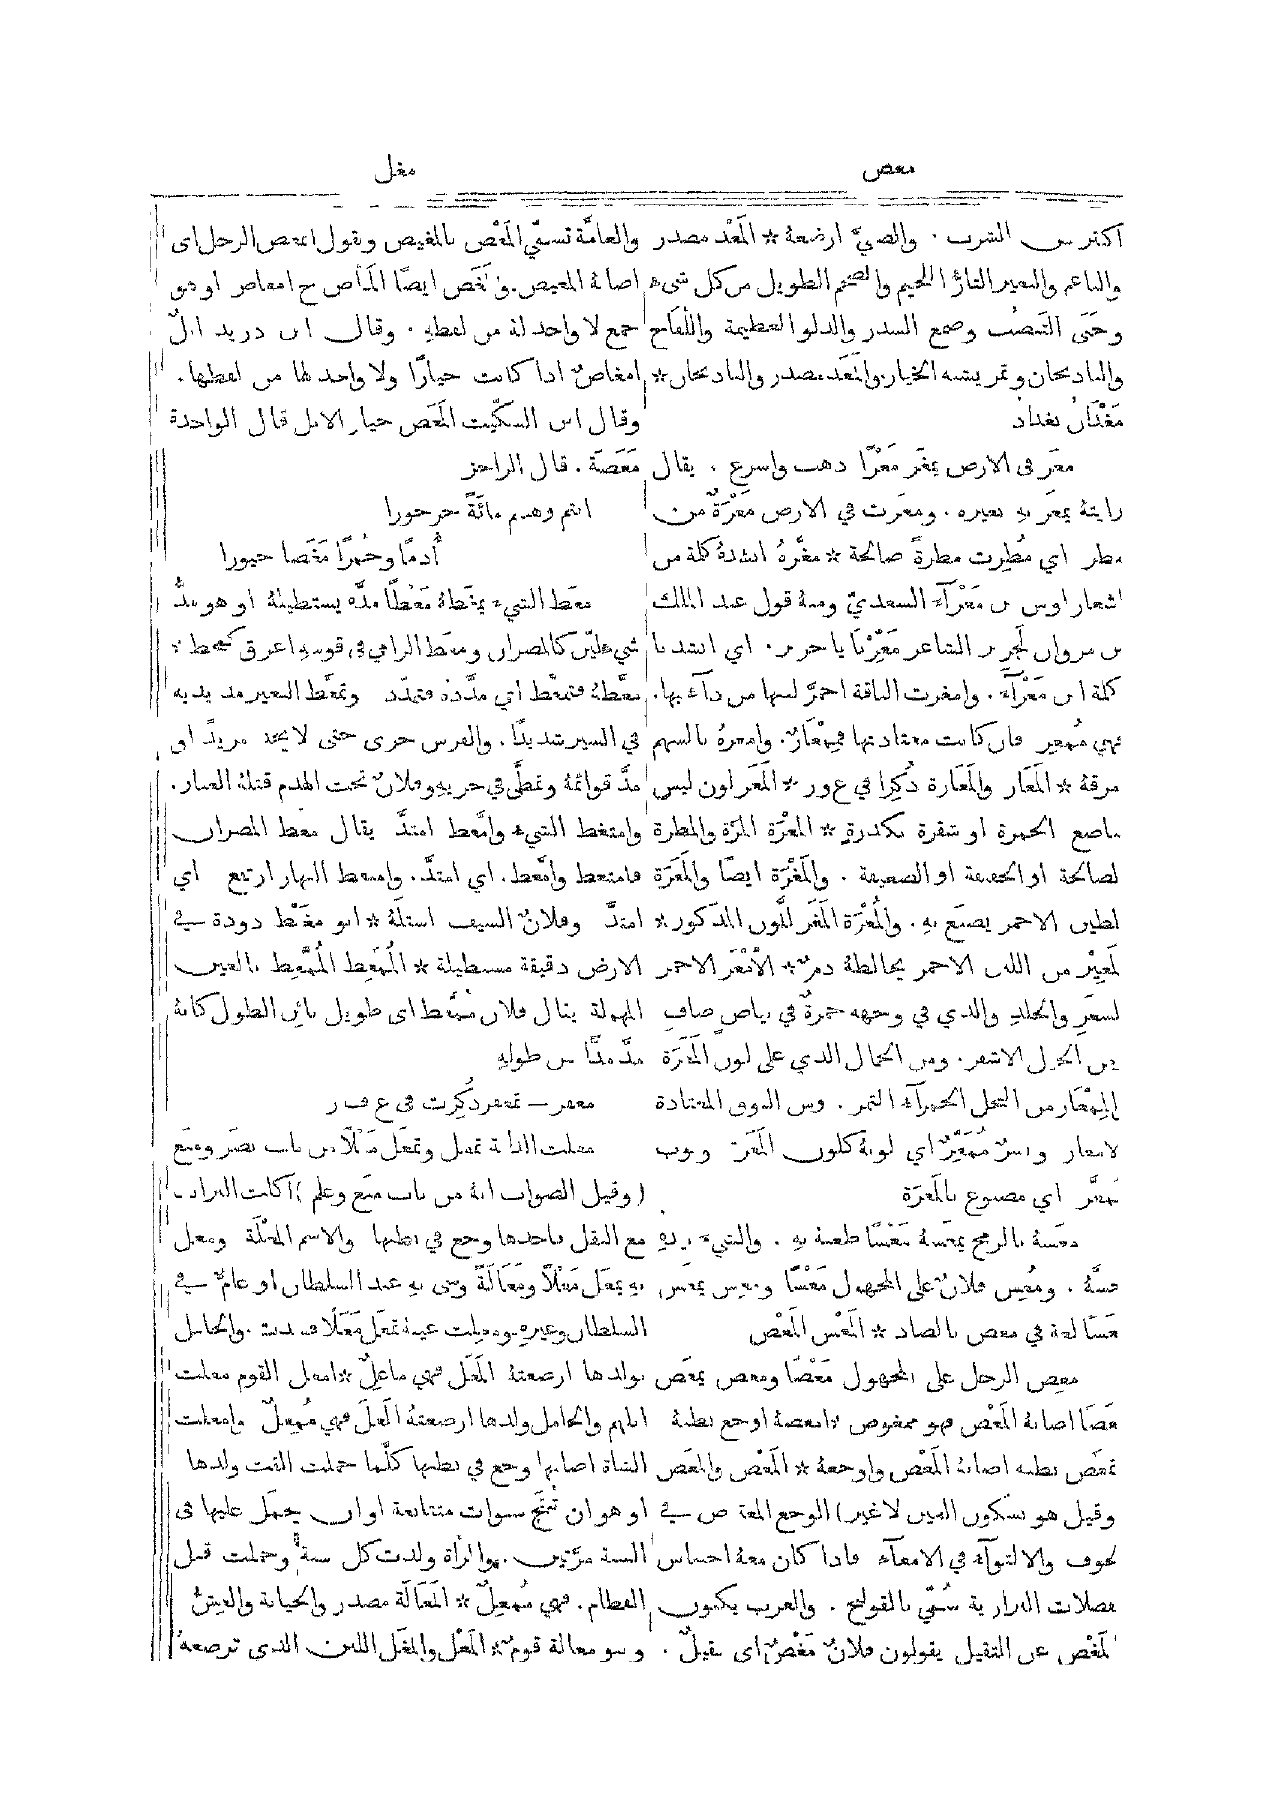 مغص
مغل
اكثر من الشرب. والصبيَّ ارضعهُ * المَغْد مصدر
والناعم والبعير التارُّ اللحيم والضخم الطويل من كل شيء
وجَنَى التَنضُب وصمغ السدر والدلو العظيمة واللُفَّاح
والباذنجان وثمر يشبه الخيار. والمَغَد مصدر والباذنجان *
مَغْدَانُ بغداد
مغَر في الارض يمغَر مَغْرًا ذهب واسرع. يقال
رايتهُ يمغَر بهِ بعيره. ومغَرت في الارض مَغْرَةٌ من
مطر اي مُطِرت مطرةً صالحة * مغَّرهُ انشدهُ كلمة من
اشعار اوس بن مَغْرَآءَ السعديّ ومنهُ قول عبد الملك
بن مروان لجرير الشاعر مَغِّرْنَا يا جرير. اي انشدنا
كلمة ابن مَغْرَآءَ. وامغرت الناقة احمرَّ لبنها من دآءٍ بها.
فهي مُمغِر فان كانت معتادتها فمِمْغَارٌ. وامغرهُ بالسهم
مرقهُ * المَغَار والمَغَارة ذُكِرا في غ ور * المَغَر لون ليس
بناصع الحمرة او شقرة بكدرةٍ * المَغْرَة المرَّة والمطرة
لصالحة او الخفيفة او الضعيفة. والمَغْرَة ايضًا والمَغَرَة
لطين الاحمر يصبَغ بهِ. والمُغْرَة المَغَر للَّون المذكور *
لمَغِيْر من اللبن الاحمر يخالطهُ دمٌ * الأَمْغَر الاحمر
لشعَرِ والجلدِ والذي في وجهه حمرةٌ في بياضٍ صافٍ
من الخيل الاشقر. ومن الجمال الذي على لون المَغْرَة
المِمْغَار من النخل الحمرآءُ التمر. ومن النوق المعتادة
لامغار وبسرٌ مُمَغِّرٌ اي لونهُ كلون المَغْرَة وثوب
مُمغَّر اي مصبوغ بالمَغْرَة
مغَسهُ بالرمح يمغَسهُ مَغْسًا طعنهُ بهِ. والشيءَ بيدهِ
جسَّهُ. ومُغِس فلانٌ على المجهول مَغْسًا ومغِس يمغَس
مَغَسًا لغة في مغص بالصاد * المَغْس المَغْص
مغِص الرجل على المجهول مَغْصًا ومغص يمغَص
مَغَصًا اصابهُ المَغْص فهو ممغوص * امغصهُ اوجع بطنهُ
تمغَّص بطنه اصابهُ المَغْص واوجعهُ * المَغْص والمَغَص
وقيل هو بسكون الغين لا غير) الوجع المعترض في
لجوف والالتوآءُ في الامعآءِ فاذا كان معهُ احتباس
فضلات البرازية سُمِّي بالقولنج. والعرب يكنون
لمَغْص عن الثقيل يقولون فلانٌ مَغْصٌ اي ثقيلٌ.
والعامَّة تسمِّي المَغْص بالمغيص وتقول انمغص الرجل اي
اصابهُ المغيص. والمَغَص ايضًا المَأَص ج امغاص او هو
جمع لا واحد لهُ من لفظهِ. وقال ابن دريد ابلٌ
امغاصٌ اذا كانت خيارًا ولا واحد لها من لفظها.
وقال ابن السكّيت المَغَص خيار الابل قال الواحدة
مَغَصَة. قال الراجز
انتم وهبتم مائَةً جرجورا
أُدمًا وحُمرًا مَغَصا حبورا
مغَط الشيءَ يمغَطهُ مَغْطًا مدَّه يستطيلهُ او هو مدُّ
شيءٍ ليِّن كالمصران ومغَط الرامي في قوسهِ اغرق كمخط *
مغَّطهُ فتمغَّط اي مدَّدهُ فتمدَّد وتمغَّط البعير مد يديه
في السير شديدًا. والفرس جرى حتى لا يجد مزيدًا او
مدَّ قوائمهُ وتمطَّى في جريهِ وفلانٌ تحت الهدم قتلهُ الغبار.
وامتغط الشيءُ وامَّغط امتدَّ يقال مغط المصران
فامتغط وامَّغط. اي امتدَّ. وامتغط النهار ارتفع اي
امتدَّ وفلانٌ السيف استلَّهُ * ابو مغَيْط دودة في
الارض دقيقة مستطيلة * المُمَّغِط المُمَّعِط بالعين
المهملة يقال فلان مُمَّغط اي طويل بائن الطول كانهُ
مدَّ مدًّا من طولهِ
مغفر — تمغفر ذُكِرَت في غ ف ر
مغلت الدابَّة تمغل وتمغَل مَغْلًا من باب نصَر ومنَع
(وقيل الصواب انهُ من باب منَع وعلِم) اكلت التراب
مع البقل فاخذها وجع في بطنها والاسم المَغْلة ومغل
بهِ يمغَل مَغْلًا ومَغَالَةً وشى بهِ عند السلطان او عامٌّ في
السلطان وغيرهِ ومغِلت عينهُ تمغَل مَغَلًا فسدت. والحامل
بولدها ارضعتهُ المَغَل فهي ماغِلٌ * امغل القوم مغلت
ابلهم والحامل ولدها ارضعتهُ المَغَلَ فهي مُمْغِلٌ وامغلت
الشاة اصابها وجع في بطنها كلَّما حملت القت ولدها
او هو ان تُنتَج سنوات متتابعة او ان يحمَل عليها في
السنة مرَّتين. والمرأة ولدت كل سنةٍ وحملت قبل
الفطام. فهي مُمْغِلٌ * المَغَالَة مصدر والخيانة والغِشُّ
وبنو مغالة قومٌ * المَغْل والمَغَل اللبن الذي ترضعهُ